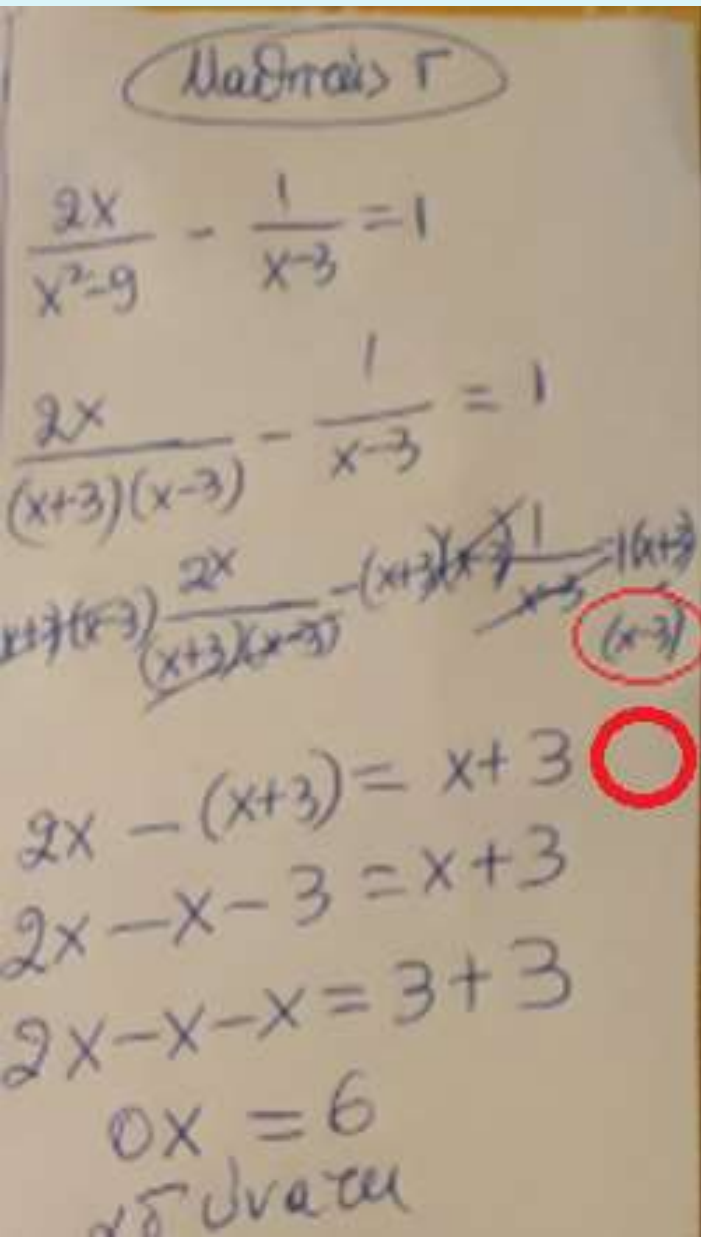 Μαθητής Γ
2x/(x²-9) - 1/(x-3) = 1
2x/((x+3)(x-3)) - 1/(x-3) = 1
(x+3)(x-3) 2x/((x+3)(x-3)) - (x+3)(x-3) 1/(x-3) = 1(x+3)(x-3)
2x - (x+3) = x+3
2x - x - 3 = x+3
2x - x - x = 3+3
0x = 6
αδύνατη